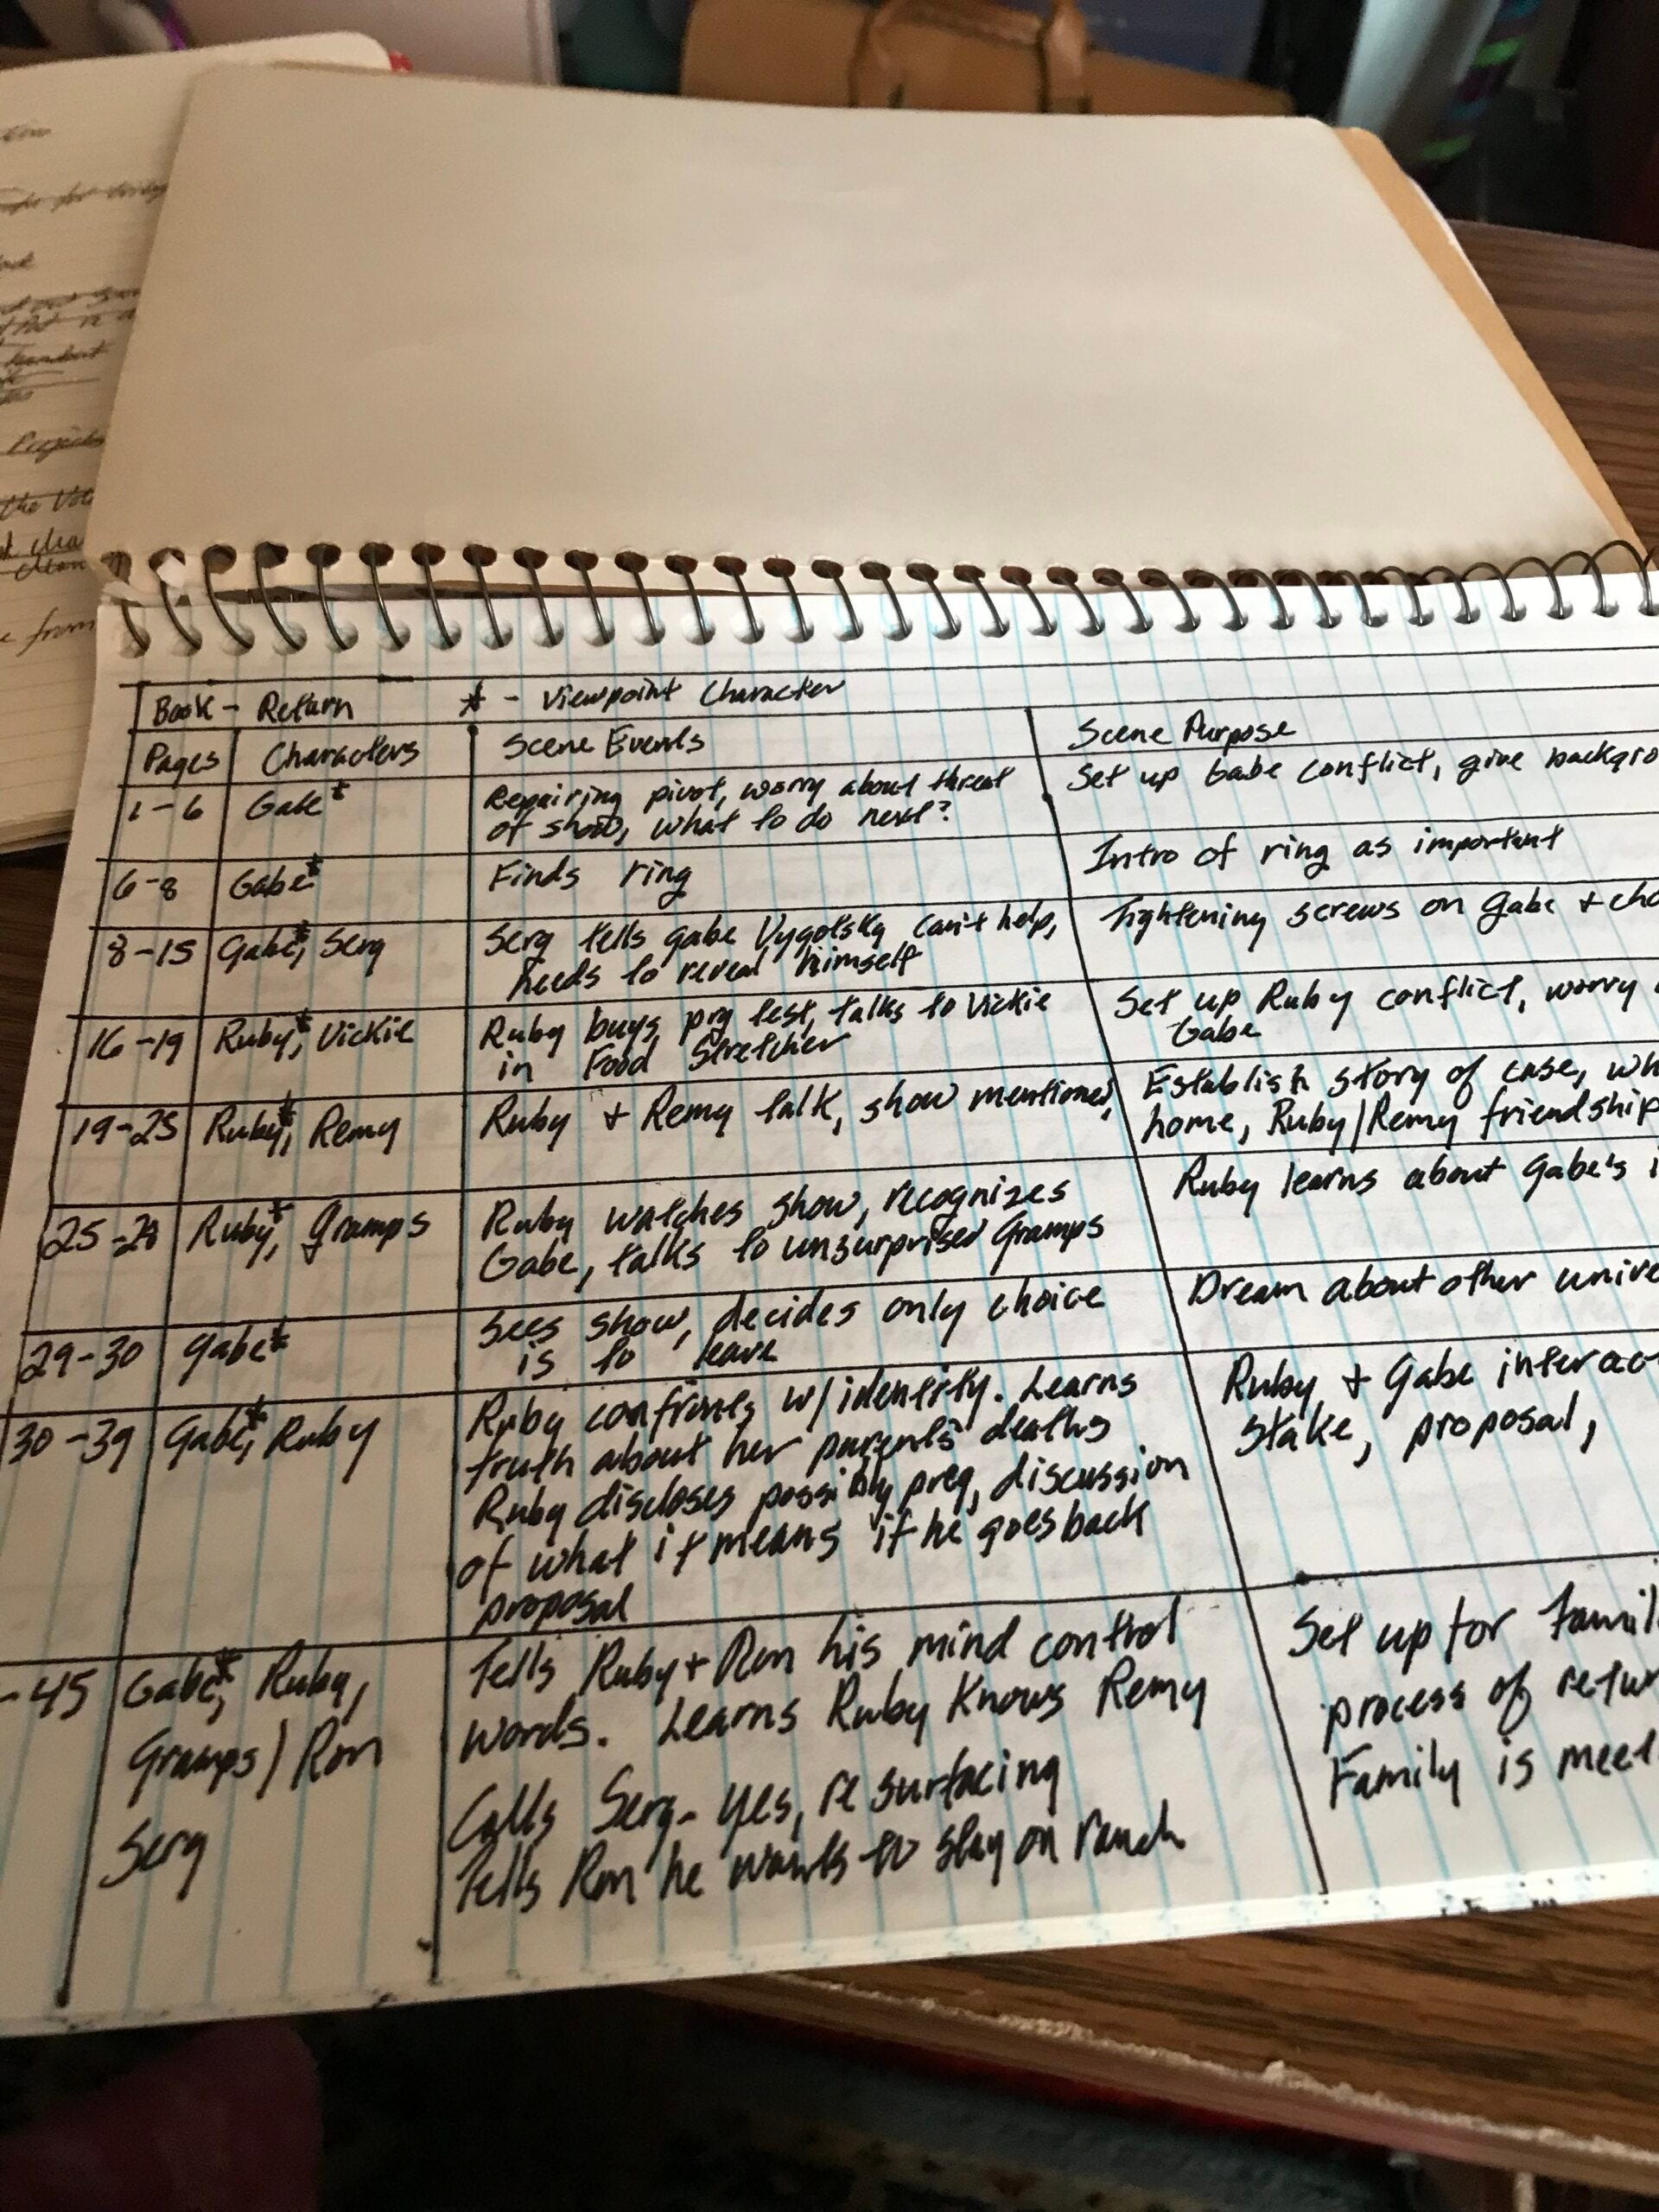 Book - Return * - Viewpoint Character
Pages Characters Scene Events Scene Purpose
1-6 Gabe* Repairing pivot, worry about threat
of show, what to do next?
Set up Gabe conflict, give backgro
6-8 Gabe* Finds ring Intro of ring as important
8-15 Gabe*, Serg Serg tells gabe Vygotsky can't help,
needs to reveal himself
Tightening screws on Gabe + cho
16-19 Ruby*, Vickie Ruby buys prg test, talks to Vickie
in Food Stretcher
Set up Ruby conflict, worry
Gabe
19-25 Ruby*, Remy Ruby + Remy talk, show mentioned,
Establish story of case, wh
home, Ruby/Remy friendship
25-28 Ruby*, Gramps Ruby watches show, recognizes
Gabe, talks to unsurprised Gramps
Ruby learns about Gabe's i
29-30 Gabe* Sees show, decides only choice
is to leave
Dream about other unive
30-39 Gabe*, Ruby Ruby confronts w/identity. Learns
truth about her parents' deaths
Ruby discloses possibly preg, discussion
of what it means if he goes back
proposal
Ruby + Gabe interac
Stake, proposal,
-45 Gabe*, Ruby,
Gramps/Ron
Serg
Tells Ruby + Ron his mind control
words. Learns Ruby knows Remy
Calls Serg- yes, resurfacing
Tells Ron he wants to stay on ranch
Set up for famil
process of retur
Family is meet
Projects
the
from